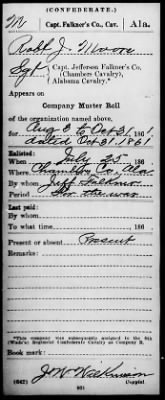 (CONFEDERATE.)
M Capt. Falkner's Co., Cav. Ala.
Robt J. Moore
Sgt, Capt. Jefferson Falkner's Co.
(Chambers Cavalry),
Alabama Cavalry.*
Appears on
Company Muster Roll
of the organization named above,
for Aug 8 to Oct 31, 1861.
dated Oct 31, 1861
Enlisted:
When July 25, 186
Where Chambers Co. Ala
By whom Jeff Falkner
Period For the war
Last paid:
By whom
To what time , 186
Present or absent Present
Remarks:
*This company was subsequently assigned to the 8th
(Wade's) Regiment Confederate Cavalry as Company
Book mark:
J W Wilkinson
(642) Copyist.